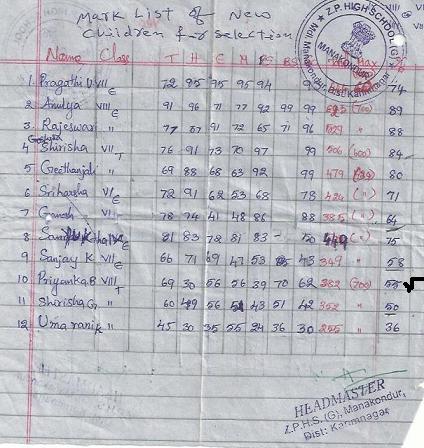 Mark List of New
Children for Selection
Z.P. HIGH SCHOOL (G)
Name Class T H E M PS BS
1 Pragathi U VII E 72 95 95 95 94 74
2 Amulya VI E 91 96 71 77 92 99 99 (700) 89
3 Rajeswari " 71 91 72 65 71 96 88
4 Shirisha VII T 76 91 73 70 97 99 506 (600) 84
5 Geethanjali " 69 88 68 63 92 99 479 80
6 Sriharsha VI E 72 91 62 53 68 78 424 (") 71
7 Ganesh VII 78 74 41 48 86 88 385 (") 64
8 81 83 72 81 83 - 50 75
9 Sanjay K VII E 66 71 69 47 53 43 349 (") 58
10 Priyanka.B VIII T 69 30 56 56 39 70 62 382 (700) 55 √
11 Shirisha G " 60 49 56 51 43 51 42 352 (") 50
12 Umarani K " 45 30 35 55 24 36 30 255 (") 36
HEADMASTER
Z.P.H.S. (G), Manakondur,
Dist: Karimnagar